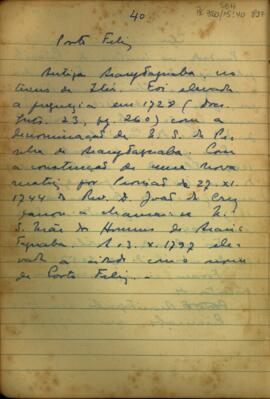 40
Porto Feliz
Antiga Araritaguaba, no
termo de Itú. Foi elevada
a freguezia em 1728 (Doc.
Ints. 23, pg. 260) com a
denominação de N. S. da Pe-
nha de Araritaguaba. Com
a construcção de uma nova
matriz por Provisão de 27. XI.
1744 do Rev. D. João da Cruz
passou a chamar-se N.
S. Mãe dos Homens de Arari-
taguaba. A 13. X. 1797 ele-
vada a cidade com o nome
de Porto Feliz. —